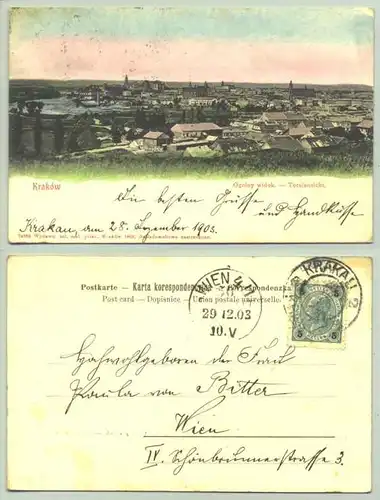 Kraków
Ogolny widok. — Totalansicht.
Die besten Grüsse
und Handküsse
Krakau, am 28. Dezember 1903.
Postkarte — Karta korespondencyjna — Correspondenzkarte
Post card — Dopisnice — Union postale universelle.
WIEN 4
29.12.03
10.V
KRAKAU 2
5 5
Hochwohlgeboren der Frau
Paula von Bitter
Wien
IV. Schönbrunnerstrasse 3.